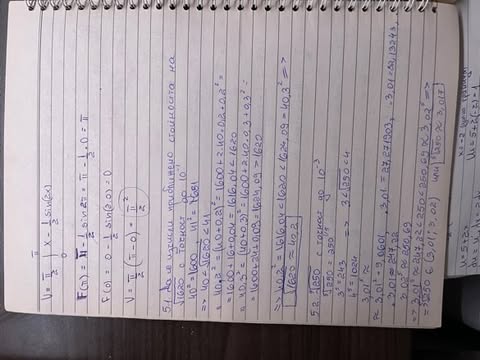 V = π/2 ∫₀^π x - 1/2 sin(2x)
F(π) = π - 1/2 sin 2π = π - 1/2 . 0 = π
F(0) = 0 - 1/2 sin(2.0) = 0
V = π/2 (π - 0) = π²/2
5.1. Да се изчисли приближено стойността на
√1620 с точност до 10⁻¹
40² = 1600, 41² = 1681
=> 40 < √1620 < 41
40,2² = (40+0,2)² = 1600 + 2.40.0,2 + 0,2² =
= 1600 + 16 + 0,04 = 1616,04 < 1620
40,3² = (40+0,3)² = 1600 + 2.40.0,3 + 0,3² =
= 1600 + 24 + 0,09 = 1624,09 > 1620
=> 40,2² = 1616,04 < 1620 < 1624,09 = 40,3² =>
√1620 ≈ 40,2
5.2. ⁵√250 с точност до 10⁻³
⁵√250 = 250^(1/5)
3⁵ = 243
=> 3 < ⁵√250 < 4
4⁵ = 1024
3,01⁵ ≈
≈ 3,01² = 9,0601, . 3,01 = 27,271903, . 3,01 =
. 3,01 ≈ 247,22
3,02⁵ ≈ 250,69
=> 3,01⁵ ≈ 247,22 < 250 < 250,69 ≈ 3,02⁵ =>
=> ⁵√250 ∈ (3,01; 3,02) или ⁵√250 ≈ 3,017
u = 5+2x